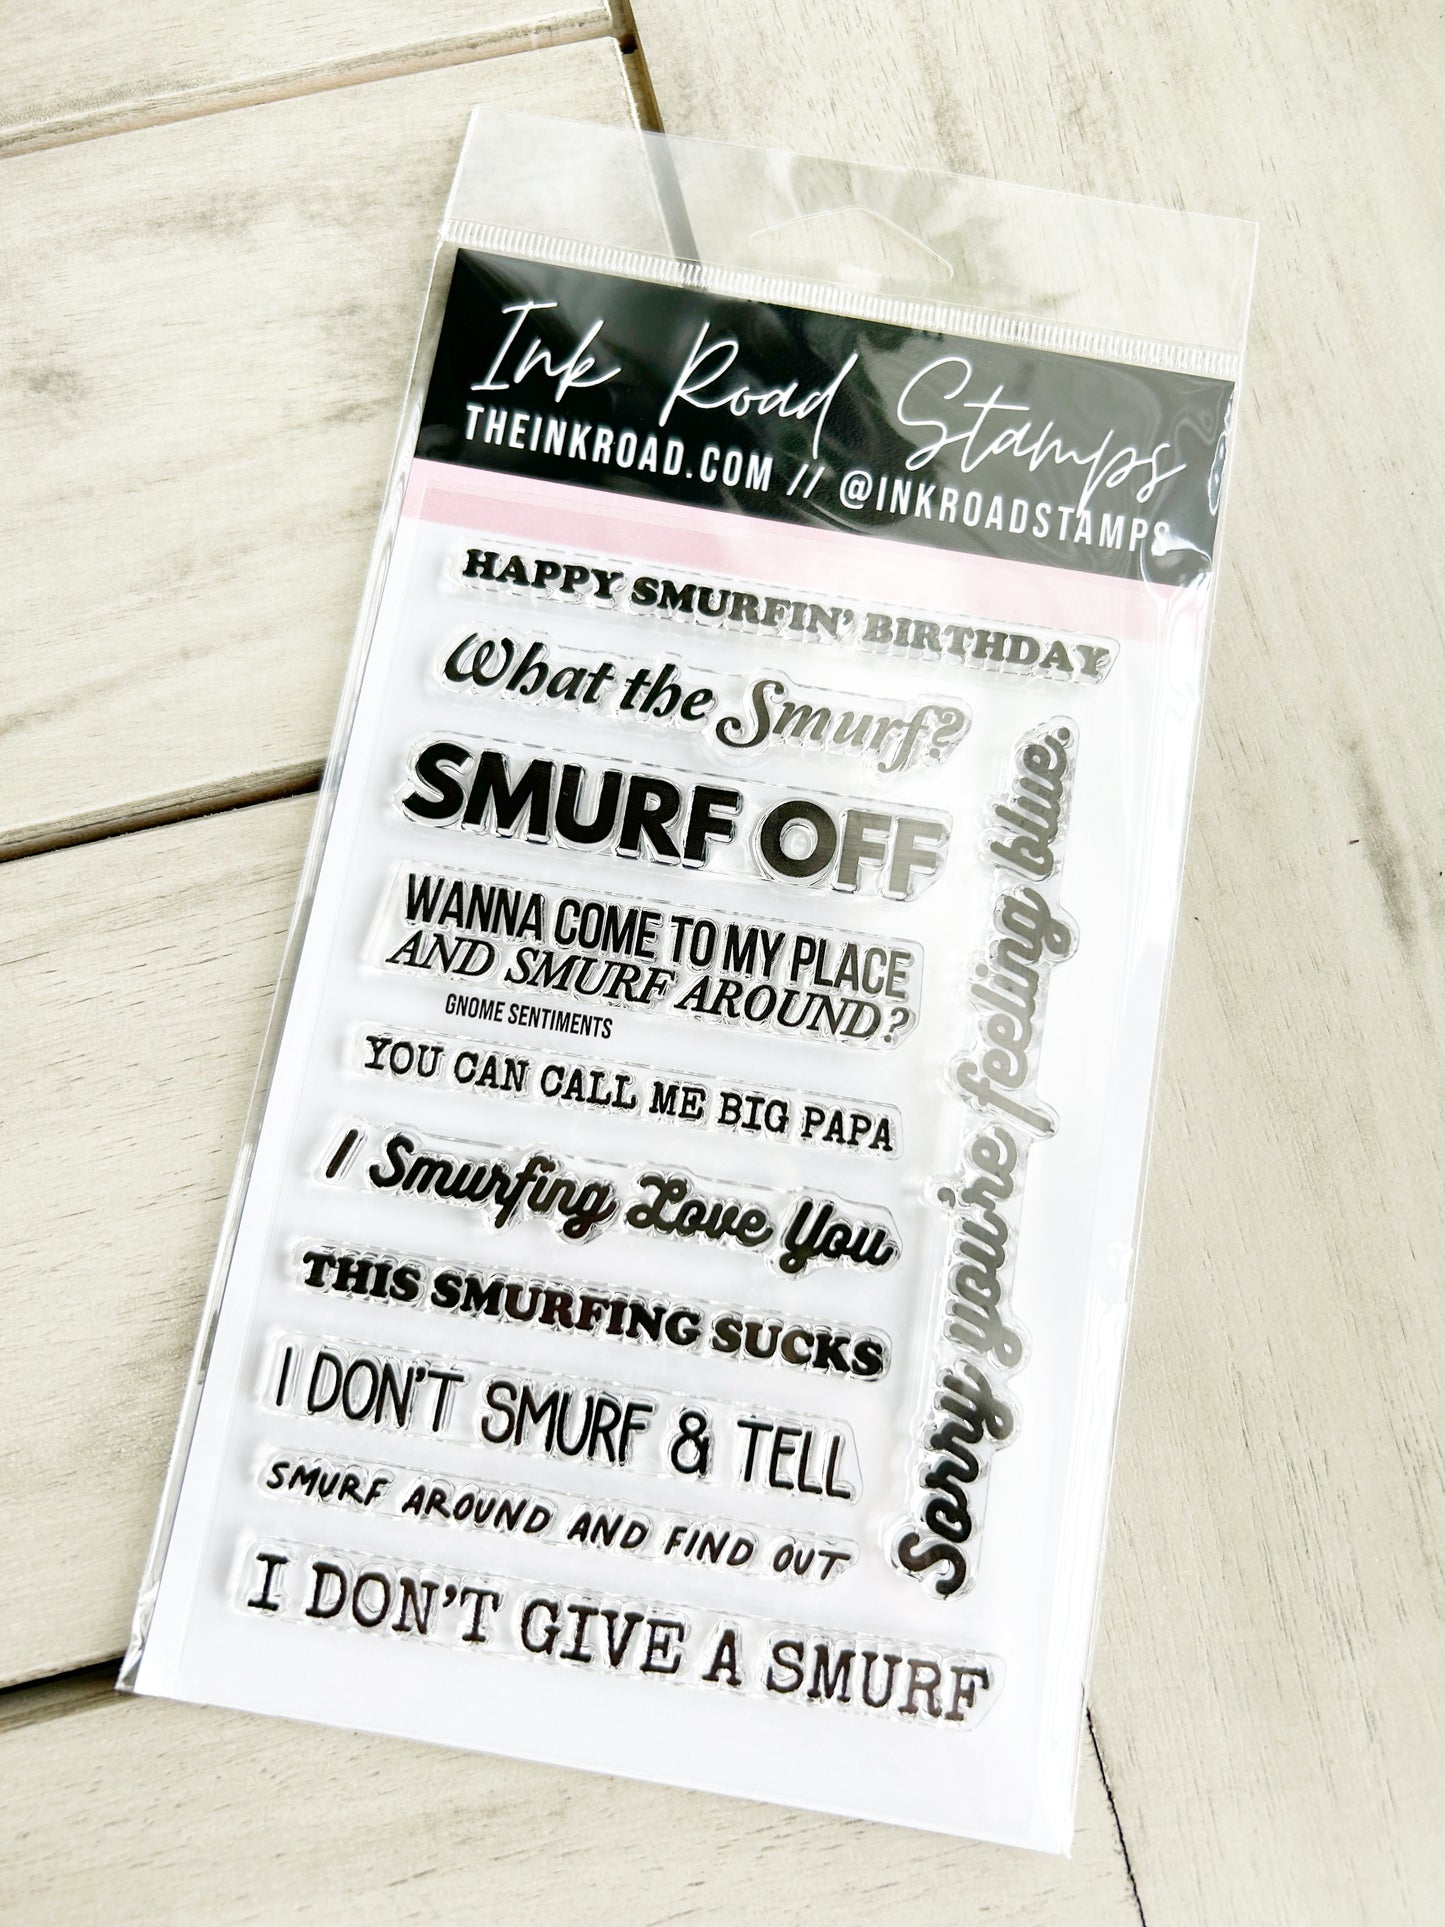 Ink Road Stamps
THEINKROAD.COM // @INKROADSTAMPS
HAPPY SMURFIN' BIRTHDAY
What the Smurf?
SMURF OFF
WANNA COME TO MY PLACE
AND SMURF AROUND?
GNOME SENTIMENTS
YOU CAN CALL ME BIG PAPA
I Smurfing Love You
THIS SMURFING SUCKS
I DON'T SMURF & TELL
SMURF AROUND AND FIND OUT
I DON'T GIVE A SMURF
Sorry you're feeling blue.